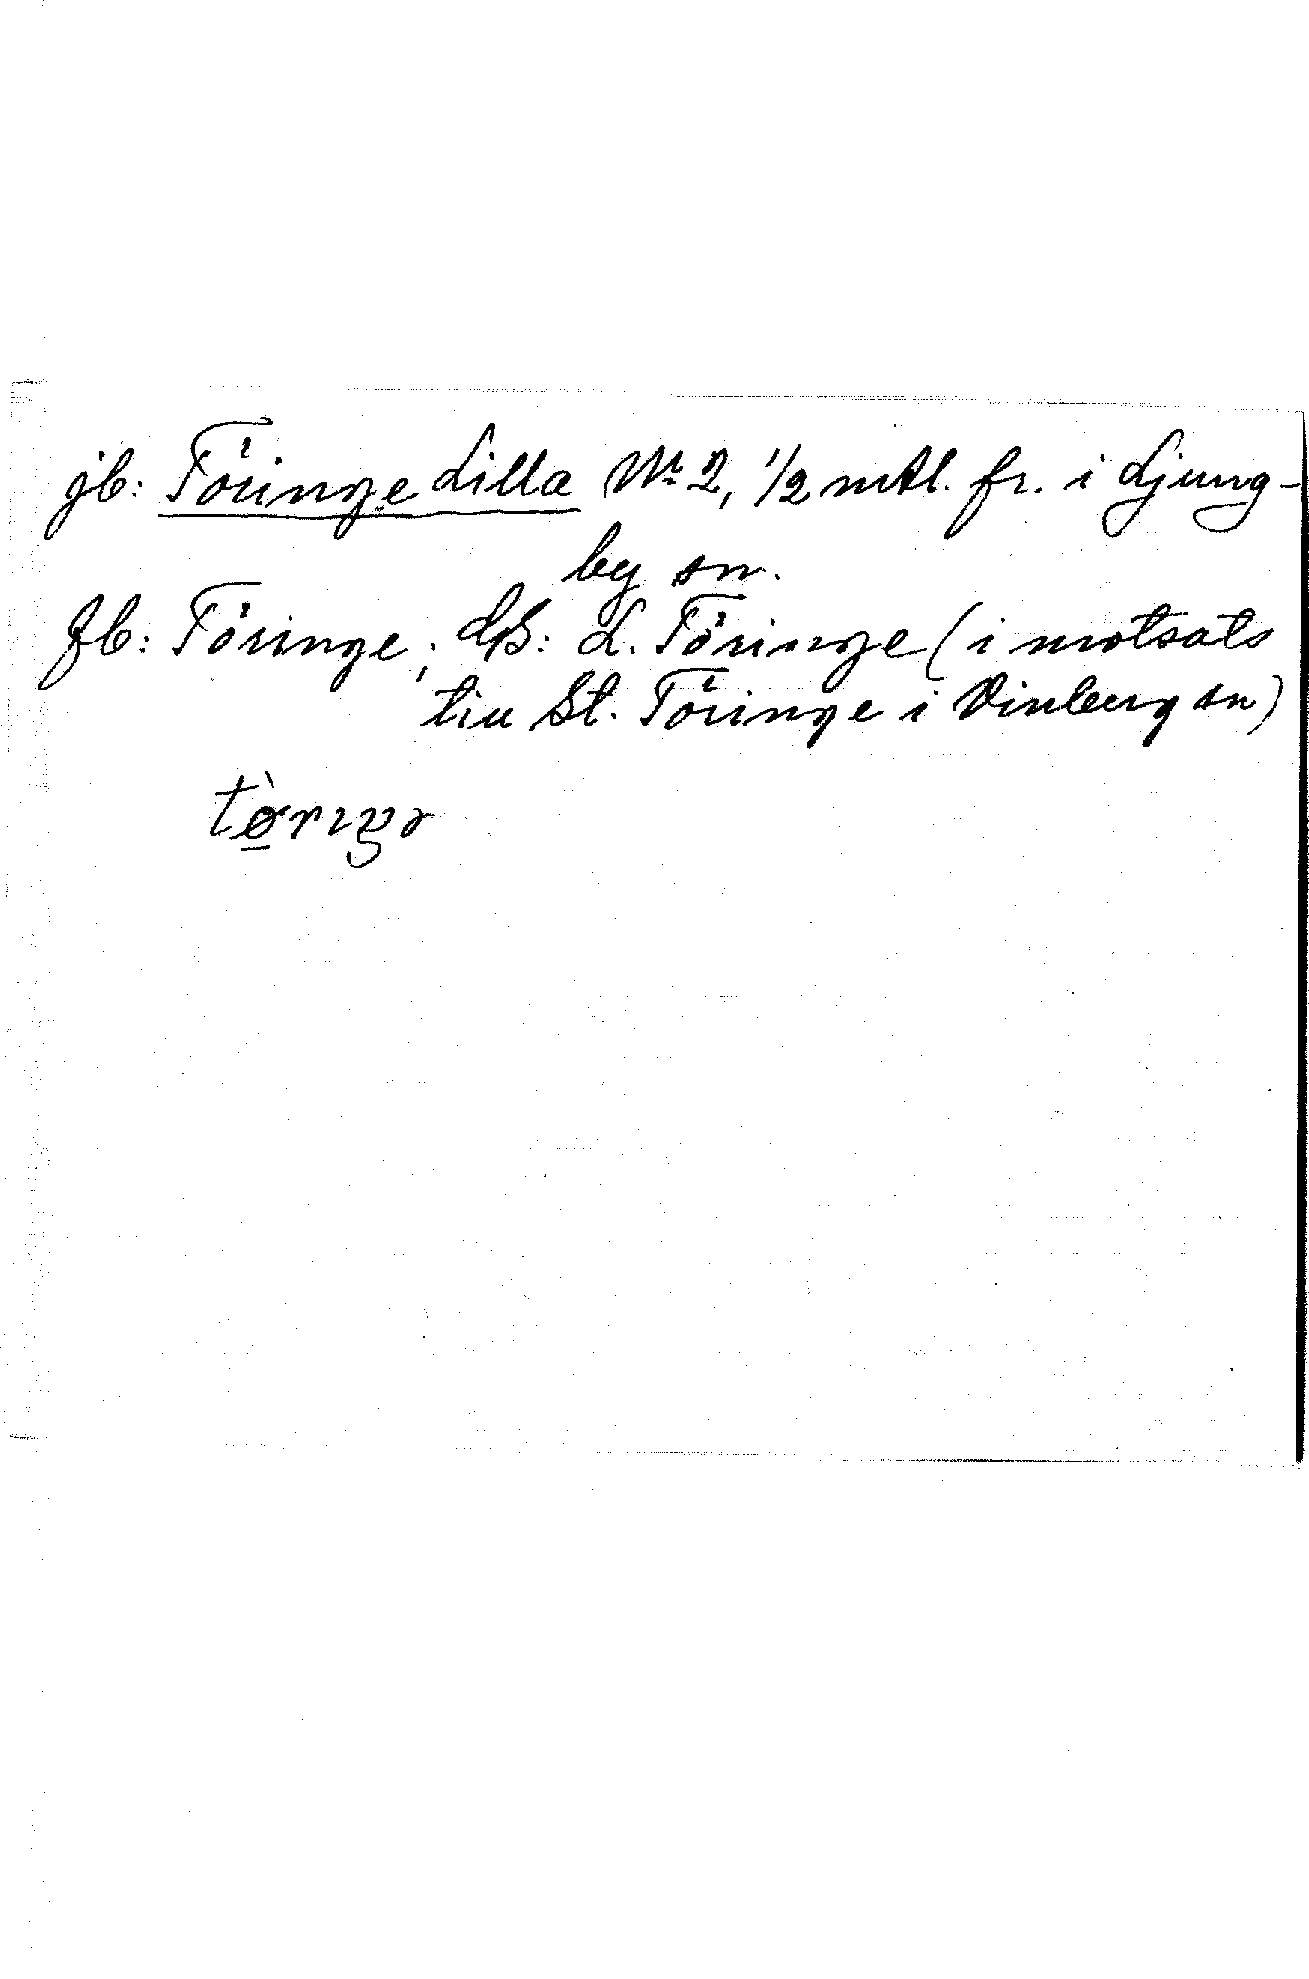 jb: Töringe Lilla Nr 2, 1/2 mtl. fr. i Ljung-
by sn.
fb: Töringe; L. Töringe (i motsats
till St. Töringe i Vinberg sn)